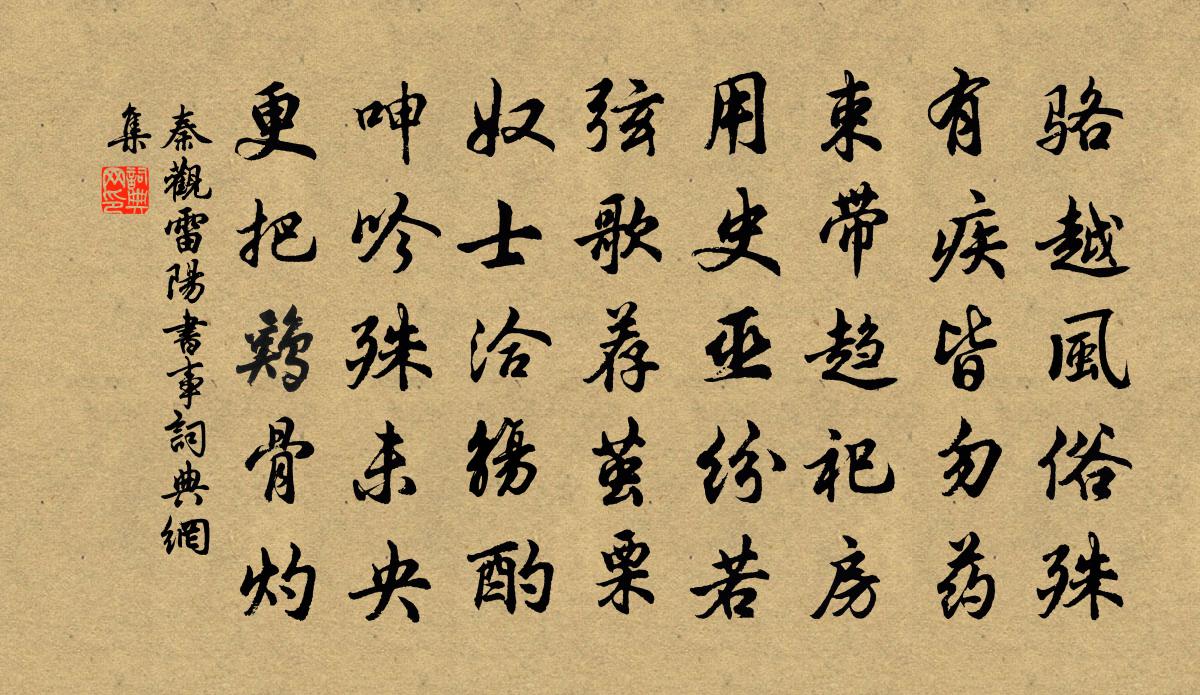 骆越風俗殊
有疾皆勿药
束带趋祀房
用史巫纷若
弦歌荐茧栗
奴士洽觞酌
呻吟殊未央
更把鸡骨灼
秦觀雷陽書事詞典網
集
詞典網印